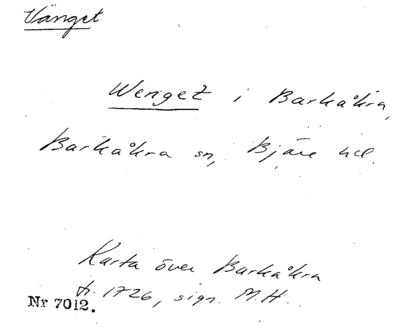 Vänget
Wenget i Barkåkra,
Barkåkra sn, Bjäre hd.
Karta över Barkåkra
fr. 1726, sign. M.H.
Nr 7012.